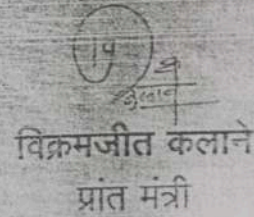 विक्रमजीत कलाने
प्रांत मंत्री